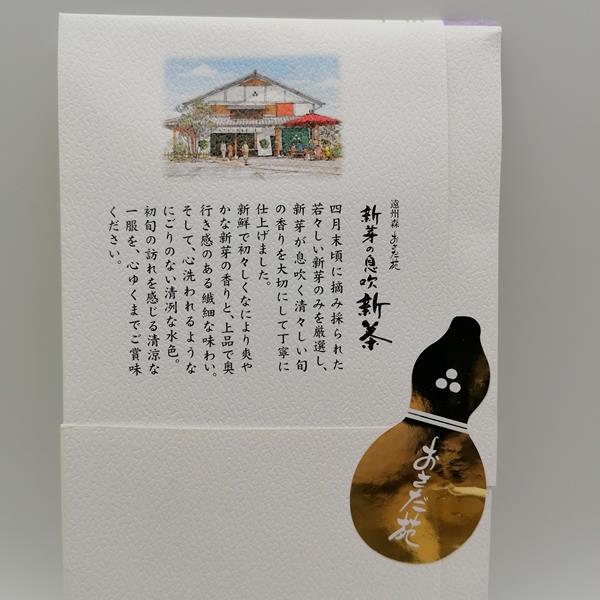 遠州森 おさだ苑
新芽の息吹新茶
四月末頃に摘み採られた
若々しい新芽のみを厳選し、
新芽が息吹く清々しい旬
の香りを大切にして丁寧に
仕上げました。
新鮮で初々しくなにより爽や
かな新芽の香りと、上品で奥
行き感のある繊細な味わい。
そして、心洗われるような
にごりのない清冽な水色。
初旬の訪れを感じる清涼な
一服を、心ゆくまでご賞味
ください。
おさだ苑